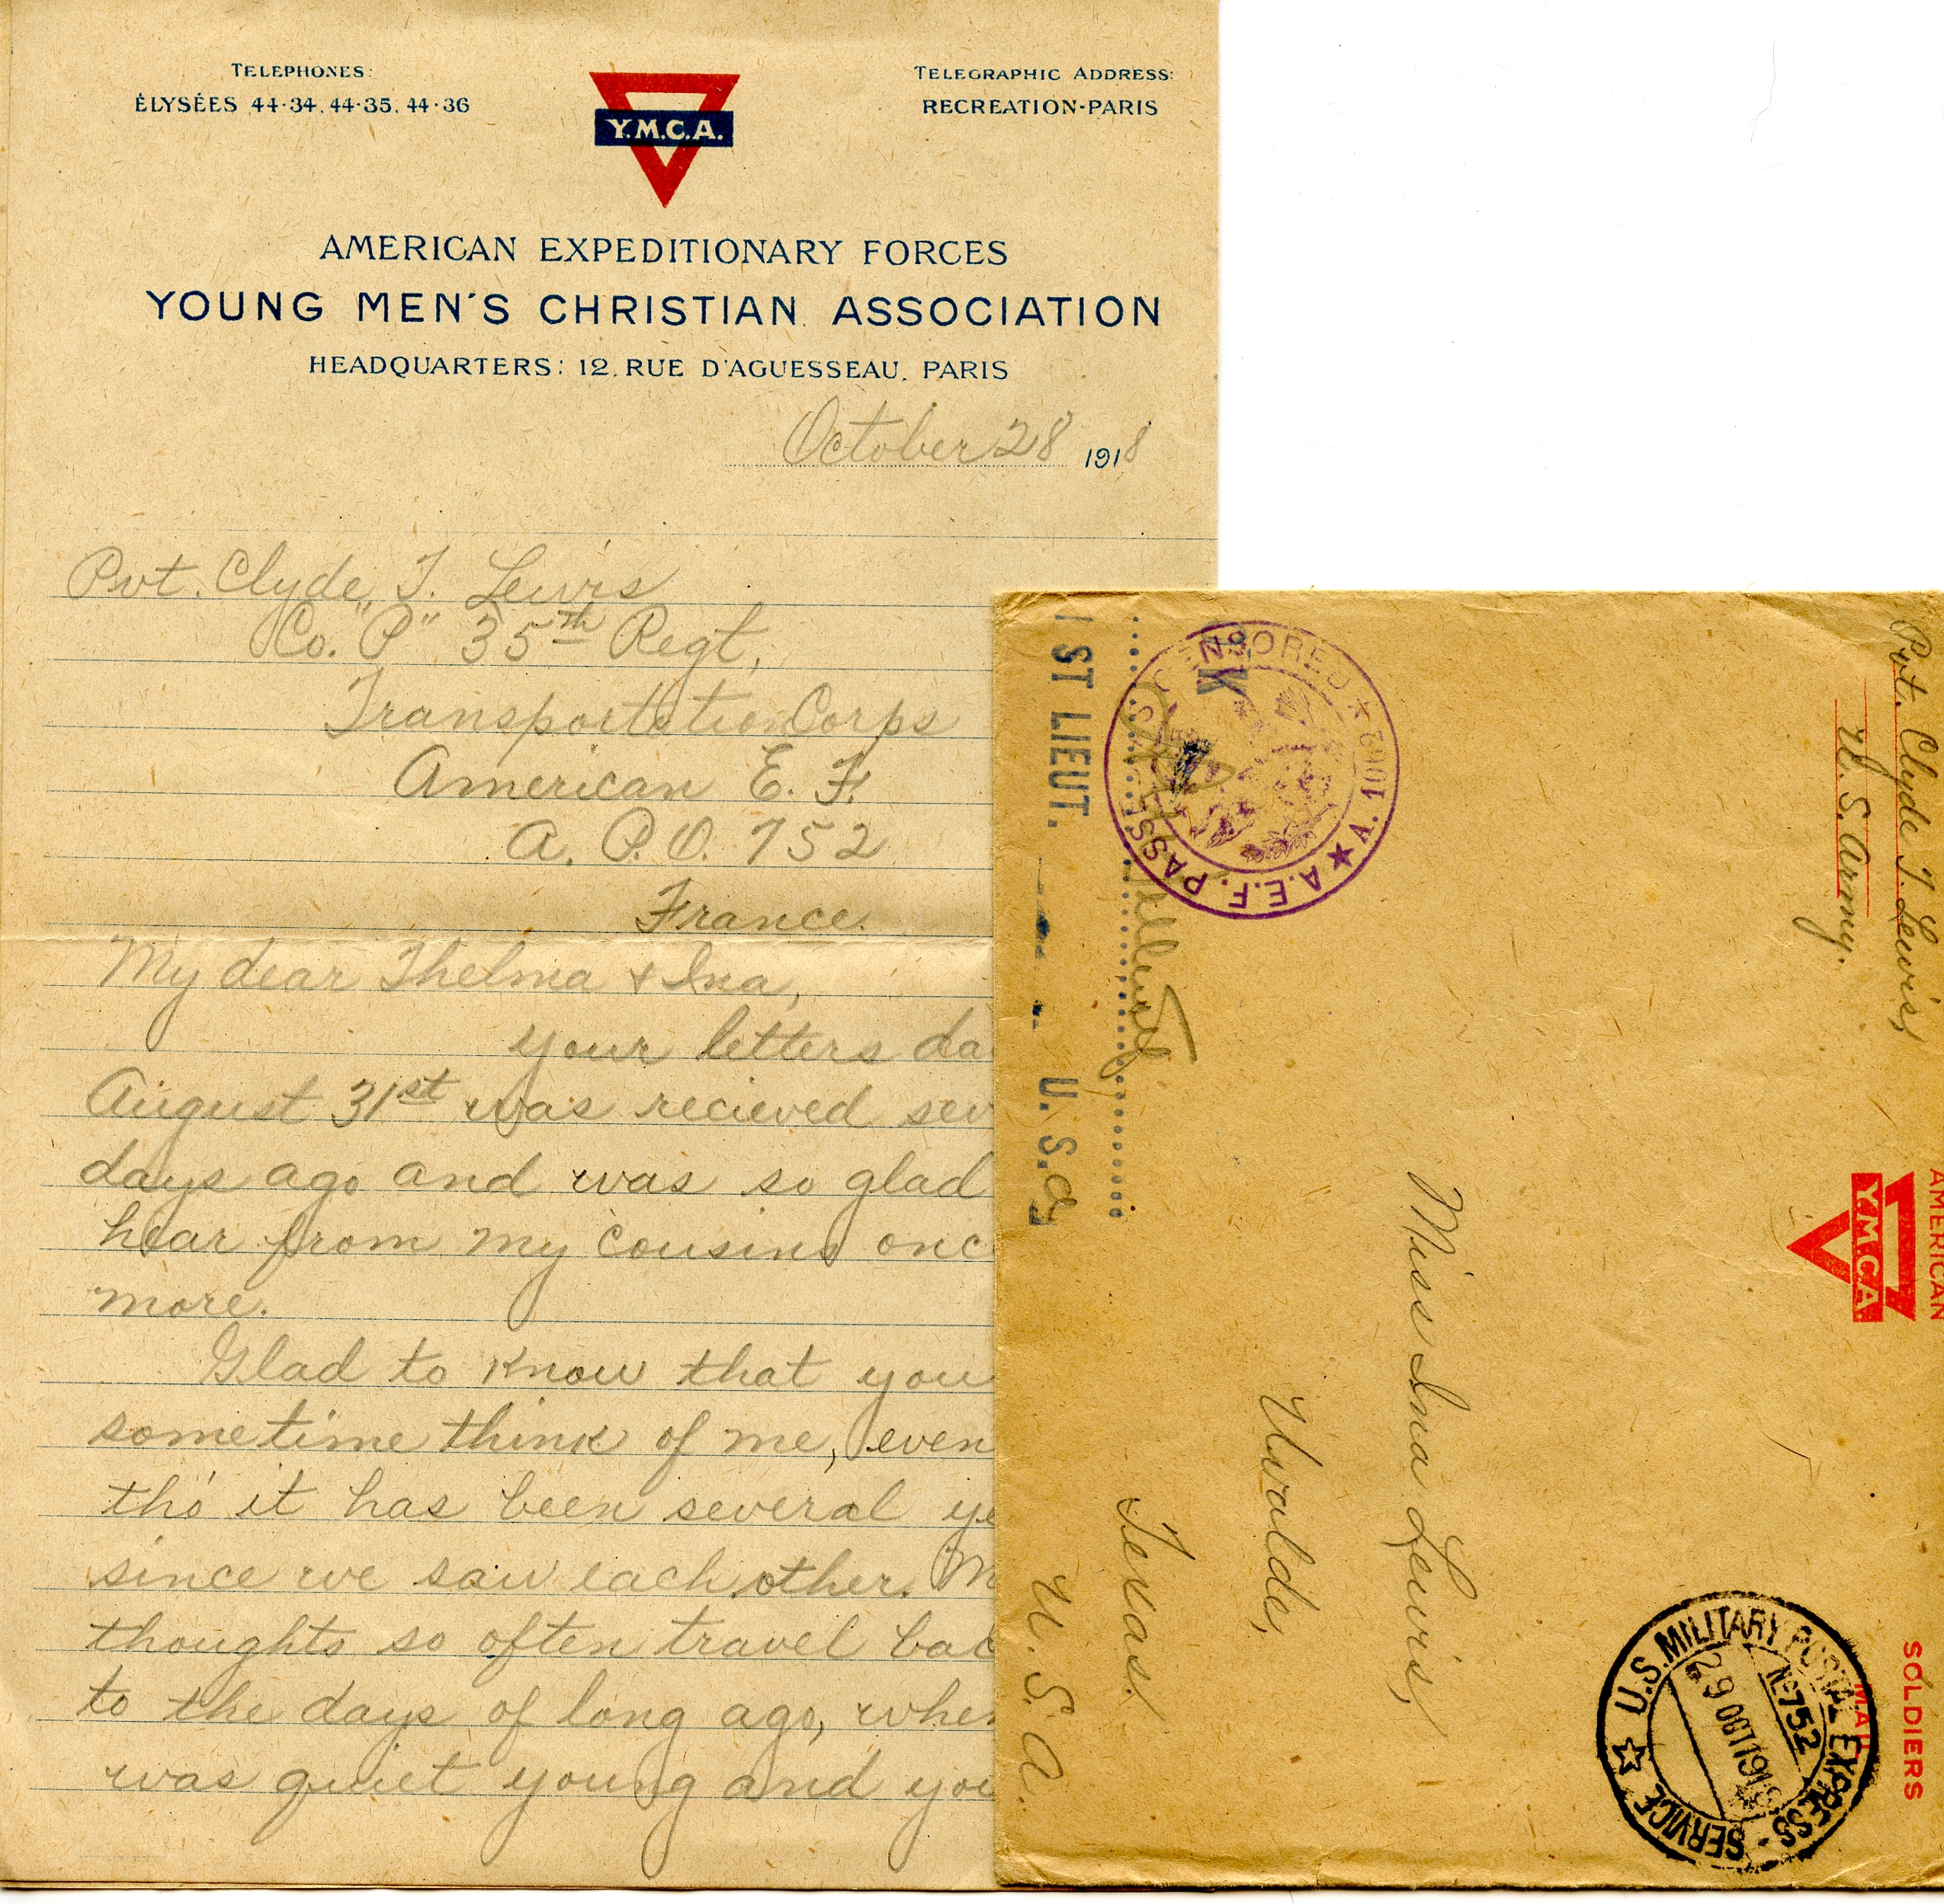 TELEPHONES:
ÉLYSÉES 44-34, 44-35, 44-36
Y.M.C.A.
TELEGRAPHIC ADDRESS:
RECREATION-PARIS
AMERICAN EXPEDITIONARY FORCES
YOUNG MEN'S CHRISTIAN ASSOCIATION
HEADQUARTERS: 12, RUE D'AGUESSEAU, PARIS
October 28 1918
Pvt. Clyde T. Lewis
Co. "P" 35th Regt,
Transportation Corps
American E. F.
A. P. O. 752
France.
My dear Thelma & Ina,
your letters da
August 31st was recieved sev
days ago and was so glad
hear from my cousins onc
more.
Glad to know that you
sometime think of me, even
tho' it has been several ye
since we saw each other. M
thoughts so often travel bac
to the days of long ago, when
was quiet young and you
Pvt. Clyde T. Lewis,
U. S. Army.
AMERICAN
Y.M.C.A.
SOLDIERS
MAIL
U.S. MILITARY POSTAL EXPRESS SERVICE
No 752
29 OCT 1918
Miss Ina Lewis,
Uvalde,
Texas.
U. S. A.
A.E.F. PASSED AS CENSORED
A. 1062
OK
1ST LIEUT.
U. S. A